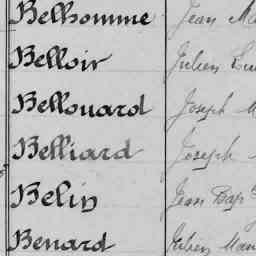 Belhomme Jean Ma
Belloir Julien
Bellouard Joseph M
Belliard Joseph
Belin Jean Bap
Benard Julien Mari